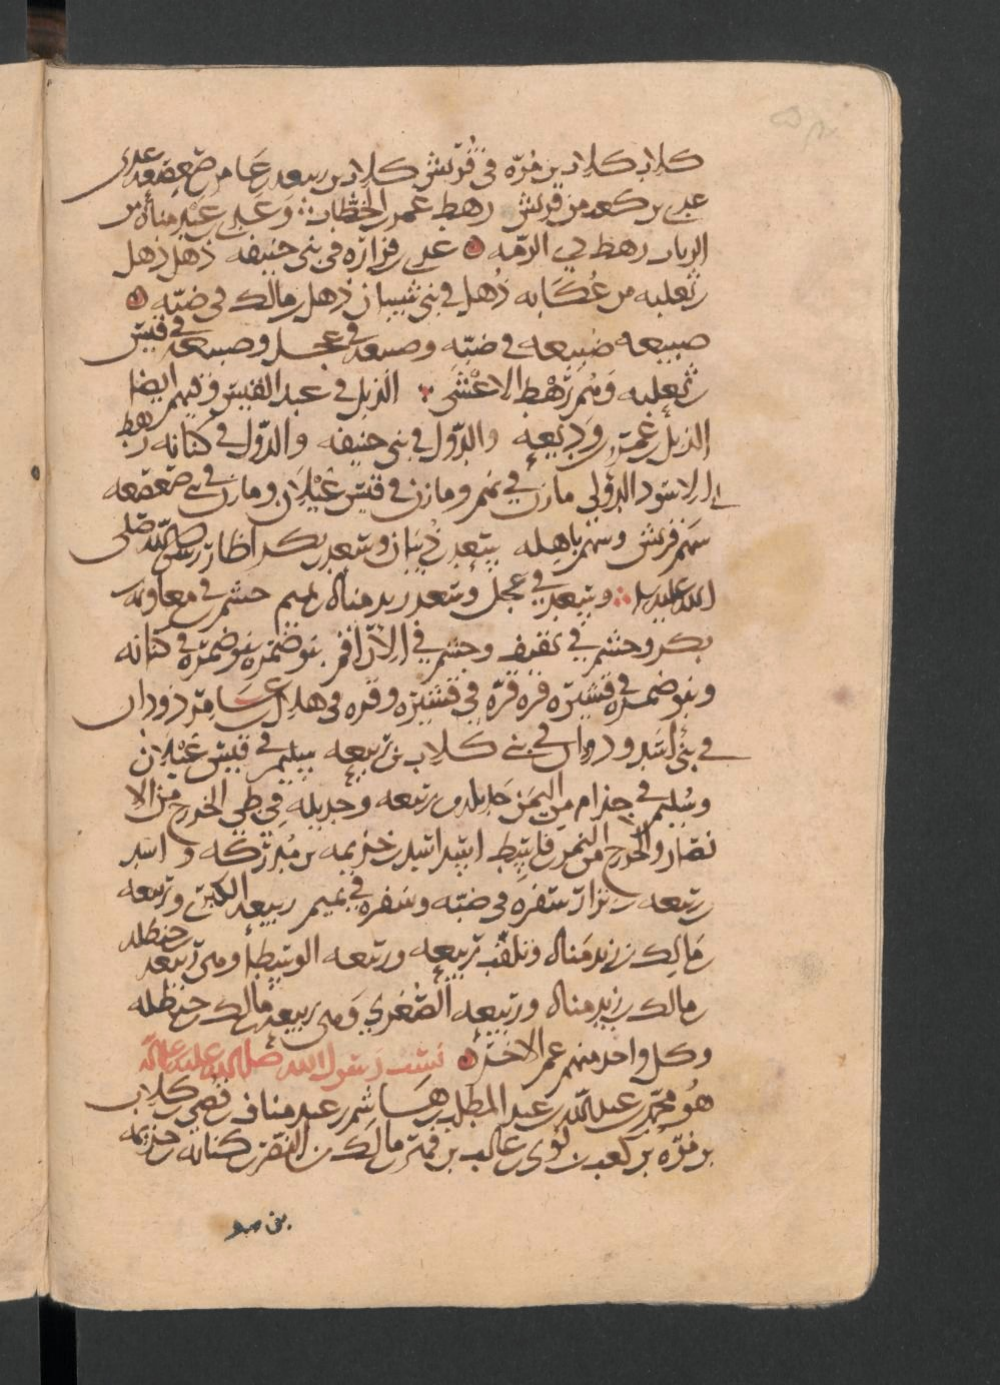 كلاب كلاب بن مره في قريش كلاب بن ربيعه بن عامر بن صعصعه عدي
عدي بن كعب من قريش رهط عمر بن الخطاب وعدي بن عبد مناه من
الرباب رهط ذي الرمه عدي فزاره في بني حنيفه ذهل ذهل
بن ثعلبه من عكابه ذهل في بني شيبان ذهل بن مالك في ضبه
ضبيعه ضبيعه في ضبه وضبيعه في عجل وضبيعه في قيس
بن ثعلبه وهم رهط الاعشى الديل في عبد القيس وفيهم ايضا
الديل بن عمرو بن وديعه والدول في بني حنيفه والدول في كنانه رهط
ابي الاسود الدولي مازن في تميم ومازن في قيس عيلان ومازن في بني صعصعه
سهم قريش وسهم باهله سعد سعد ذبيان وسعد بكر اظار رسول الله صلى
الله عليه وسلم وسعد في عجل وسعد زيد مناه تميم جشم في معاويه
بكر وجشم في ثقيف وجشم في الاراقم بنو ضمره بنو ضمره في كنانه
وبنو ضمره في قشير قره قره في قشير وقره في هلال بن عامر دودان
في بني اسد ودودان في بني كلاب بن ربيعه سليم في قيس عيلان
وسليم في جذام من اليمن جديله في ربيعه وجديله في طي الخزرج من الا
نصار والخزرج من النمر قاسط اسد اسد بن خزيمه بن مدركه واسد
بن ربيعه بن نزار شقره في ضبه وشقره في تميم ربيعه ربيعه الكبرى وربيعه
بن مالك بن زيد مناه وتلقب ربيعه وربيعه الوسطى وهي ربيعه بن حنظله
بن مالك بن زيد مناه وربيعه الصغرى وهي ربيعه بن مالك بن حنظله
وكل واحد منهم عم الاخر نسب رسول الله صلى الله عليه وعلى اله
هو محمد بن عبد الله بن عبد المطلب بن هاشم بن عبد مناف بن قصي بن كلاب
بن مره بن كعب بن لوي بن غالب بن فهر بن مالك بن النضر بن كنانه بن خزيمه